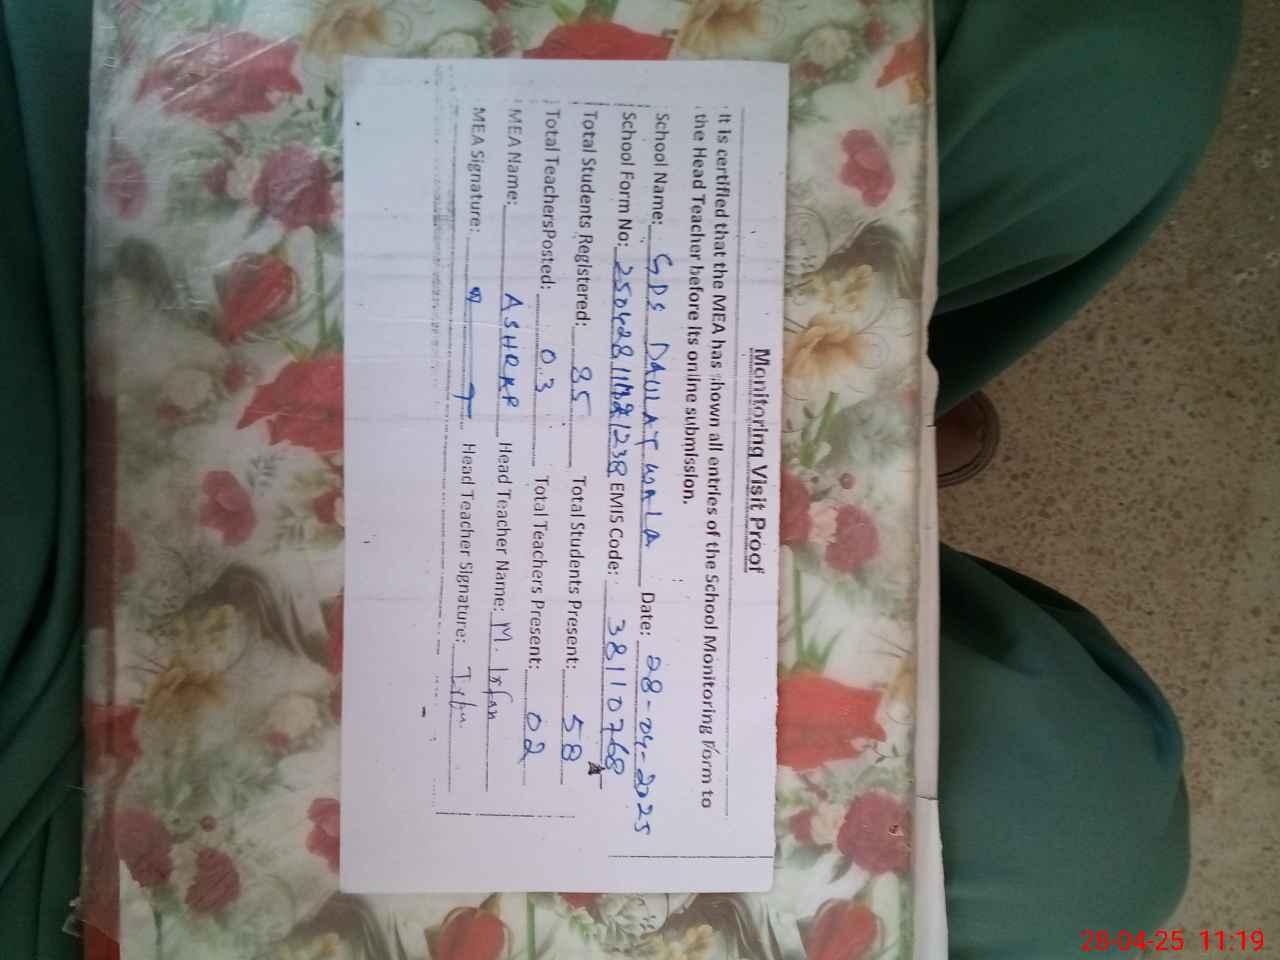 Monitoring Visit Proof
It is certified that the MEA has shown all entries of the School Monitoring Form to
the Head Teacher before its online submission.
School Name: GPS DAULAT WALA Date: 28-04-2025
School Form No: EMIS Code: 38110768
Total Students Registered: 85 Total Students Present: 58
Total TeachersPosted: 03 Total Teachers Present: 02
MEA Name: ASHRAF Head Teacher Name: M. Irfan
MEA Signature: Head Teacher Signature: Irfan
28-04-25 11:19